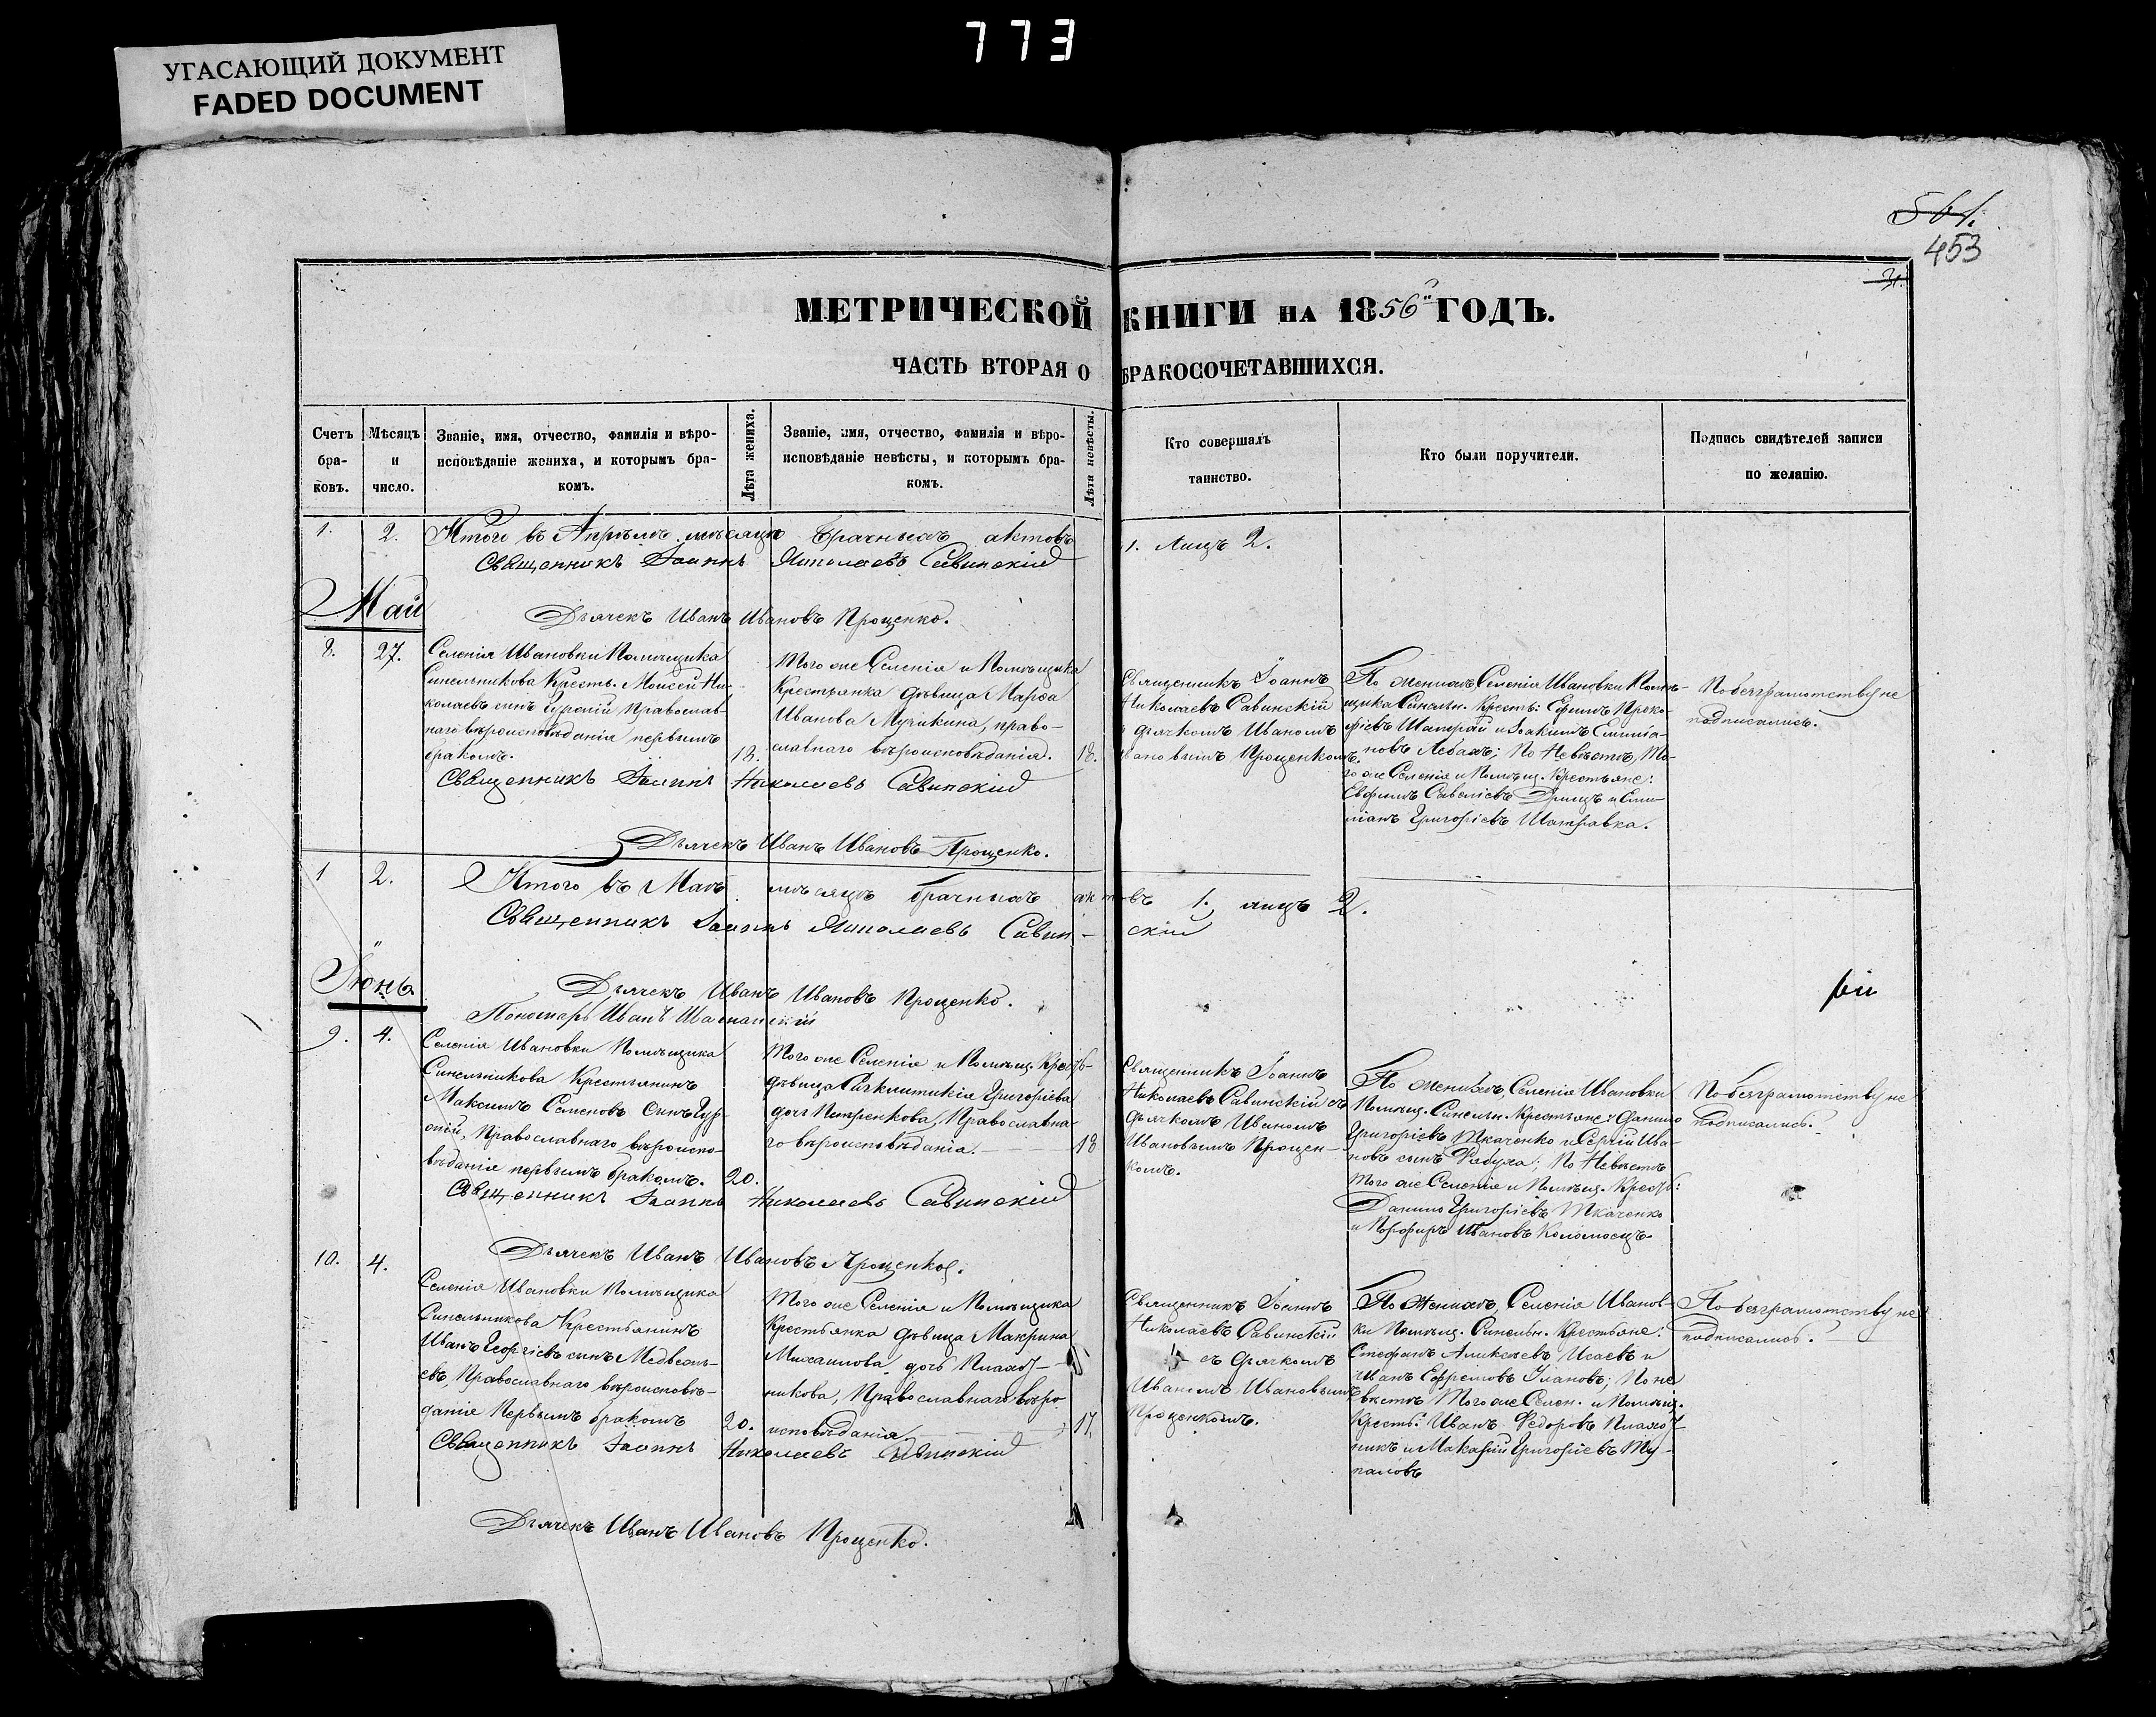 773
УГАСАЮЩИЙ ДОКУМЕНТ
FADED DOCUMENT
561.
453
31.
МЕТРИЧЕСКОЙ КНИГИ НА 1856й ГОДЪ.
ЧАСТЬ ВТОРАЯ О БРАКОСОЧЕТАВШИХСЯ.
Счетъ бра-ковъ.
Мѣсяцъ и число.
Званіе, имя, отчество, фамилія и вѣро-
исповѣданіе жениха, и которымъ бра-
комъ.
Лѣта жениха.
Званіе, имя, отчество, фамилія и вѣро-
исповѣданіе невѣсты, и которымъ бра-
комъ.
Лѣта невѣсты.
Кто совершалъ
таинство.
Кто были поручители.
Подпись свидѣтелей записи
по желанію.
1. 2. Итого въ Апрѣлѣ мѣсяцѣ брачныхъ актовъ 1. лицъ 2.
Священникъ Іоаннъ Николаевъ Савинскій
Май
Дьячекъ Иванъ Ивановъ Проценко.
8. 27.
Селенія Ивановки Помѣщика
Синельникова Кресть. Моисей Ни-
колаевъ сынъ Православ-
наго вѣроисповѣданія первымъ
бракомъ. 18.
Того же Селенія и Помѣщика
Крестьянка дѣвица Марѳа
Иванова Мучикина, право-
славнаго вѣроисповѣданія. 18.
Священникъ Іоаннъ
Николаевъ Савинскій
съ дьячкомъ Иваномъ
Ивановымъ Проценкомъ.
По женихѣ, Селенія Ивановки Помѣ-
щика Синельн. Кресть: Ефимъ Проко-
фіевъ и Іоакимъ Емилія-
новъ Лебедь; По Невѣстѣ, То-
го же Селенія и Помѣщ. Крестьяне:
Евфимъ Савеліевъ Дрищъ и Еми-
ліанъ Григоріевъ Шатравка.
По безграмотству не
подписались.
Священникъ Іоаннъ Николаевъ Савинскій
Дьячекъ Иванъ Ивановъ Проценко.
1 2. Итого въ Маѣ мѣсяцѣ брачныхъ актовъ 1. лицъ 2.
Священникъ Іоаннъ Николаевъ Савин-скій
Іюнь
Дьячекъ Иванъ Ивановъ Проценко.
Пономарь Иванъ
9. 4.
Селенія Ивановки Помѣщика
Синельникова Крестьянинъ
Максимъ Семеновъ сынъ Гур-
Православнаго вѣроиспо-
вѣданія первымъ бракомъ. 20.
Того же Селенія и Помѣщ. Кресть-
дѣвица Григоріева
дочь Петренкова, Православна-
го вѣроисповѣданія. 18
Священникъ Іоаннъ
Николаевъ Савинскій съ
дьячкомъ Иваномъ
Ивановымъ Процен-
комъ.
По женихѣ, Селенія Ивановки
Помѣщ. Синельн. Крестьяне: Данило
Григоріевъ Ткаченко и Сергій Ива-
новъ сынъ Рябуха; По Невѣстѣ
Того же Селенія и Помѣщ. Кресть:
Данило Григоріевъ Ткаченко
и Порфирь Ивановъ Коломоецъ.
По безграмотству не
подписались.
Священникъ Іоаннъ Николаевъ Савинскій
Дьячекъ Иванъ Ивановъ Проценко.
10. 4.
Селенія Ивановки Помѣщика
Синельникова Крестьянинъ
Иванъ Георгіевъ сынъ Медведь-
евъ, Православнаго вѣроисповѣ-
данія Первымъ бракомъ 20.
Того же Селенія и Помѣщика
Крестьянка дѣвица Макрина
Михаилова дочь Плахот-
никова, Православнаго вѣро-
исповѣданія 17.
Священникъ Іоаннъ
Николаевъ Савинскій
съ дьячкомъ
Иваномъ Ивановымъ
Проценкомъ.
По женихѣ, Селенія Иванов-
ки Помѣщ. Синельн. Крестьяне:
Стефанъ Алексѣевъ Исаевъ и
Иванъ Ефремовъ Улановъ; По не-
вѣстѣ Того же Селен. и Помѣщ.
Кресть: Иванъ Федоровъ Плахот-
никъ и Макарій Григоріевъ Ту-
паловъ
По безграмотству не
подписались.
Священникъ Іоаннъ Николаевъ Савинскій
Дьячекъ Иванъ Ивановъ Проценко.